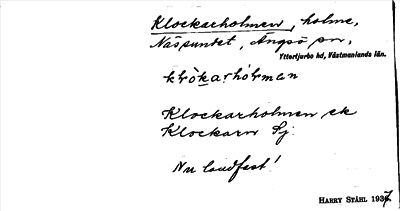 Klockarholmen, holme,
Nässundet, Ängsö sn,
Yttertjurbo hd, Västmanlands län.
klòkarhòlman
Klockarholmen ek
Klockarn Sj.
Nu landfast!
HARRY STÅHL 1937.